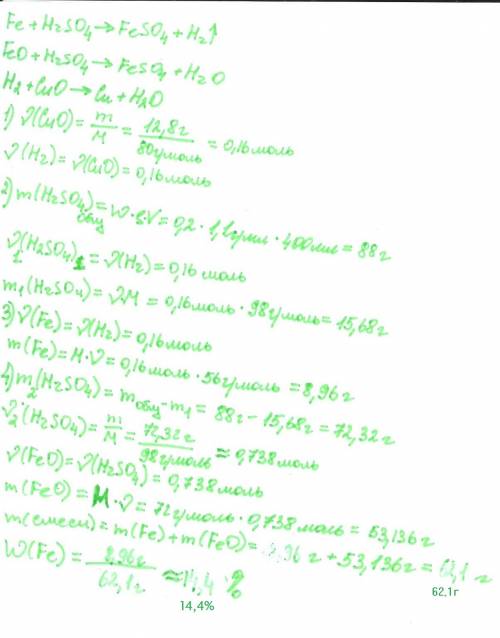 Fe + H2SO4 → FeSO4 + H2↑
FeO + H2SO4 → FeSO4 + H2O
H2 + CuO → Cu + H2O
1) ν(CuO) = m/M = 12,8г/80г/моль = 0,16 моль
ν(H2) = ν(CuO) = 0,16 моль
2) m(H2SO4)общ = W·ρ·V = 0,2 · 1,1г/мл · 400мл = 88г
ν1(H2SO4) = ν(H2) = 0,16 моль
m1(H2SO4) = νM = 0,16моль · 98г/моль = 15,68г
3) ν(Fe) = ν(H2) = 0,16моль
m(Fe) = M·ν = 0,16моль · 56г/моль = 8,96г
4) m2(H2SO4) = mобщ - m1 = 88г - 15,68г = 72,32г
ν2(H2SO4) = m/M = 72,32г/98г/моль ≈ 0,738моль
ν(FeO) = ν(H2SO4) = 0,738моль
m(FeO) = M·ν = 72г/моль · 0,738моль = 53,136г
m(смеси) = m(Fe) + m(FeO) = 8,96г + 53,136г = 62,1 г
W(Fe) = 8,96г/62,1г ≈ 14,4 %
62,1г
14,4%